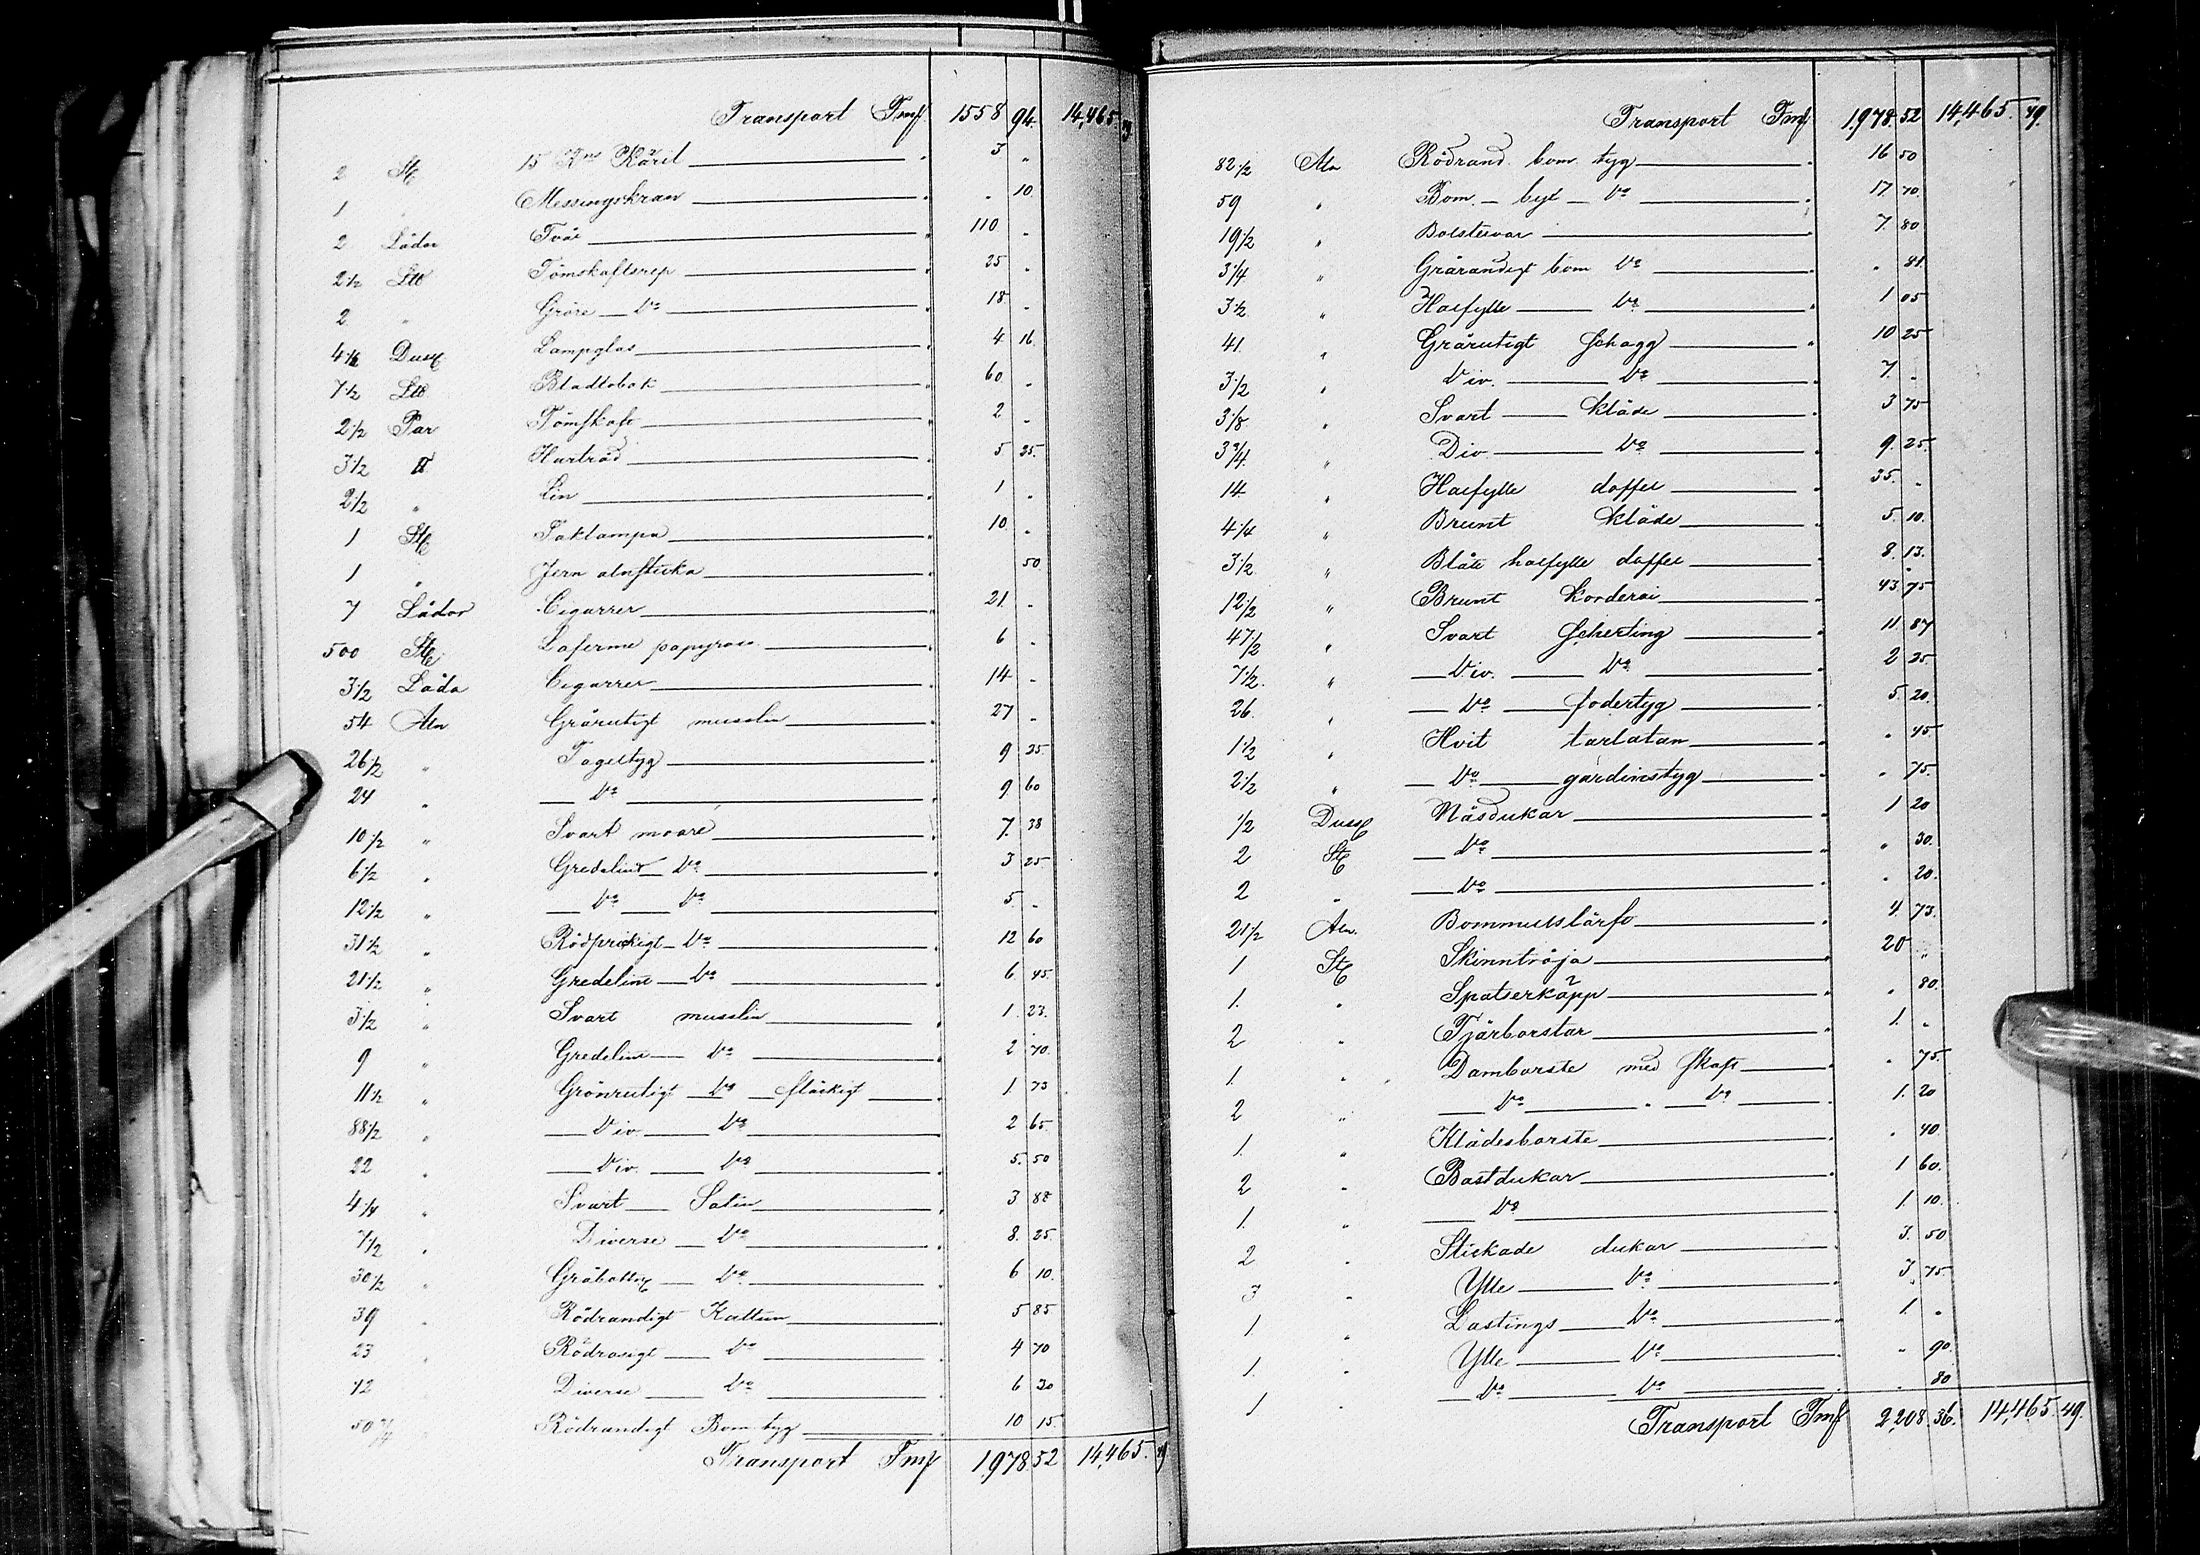 Transport Fmf 1558 94. 14,465. 49
2 St. 15 Kns Käril 3 "
1 " Messingskran " 10.
2 Lådor Tvål 110 "
2 1/2 L℔ Tömskaftsrep 25 "
2 " Gröre Do 18 "
4 1/6 Duss Lampglas 4 16.
7 1/2 L℔ Bladtobak 60 "
2 1/2 Par Tömskaft 2 "
3 1/2 ℔ Hartråd 5 25.
2 1/2 " Lin 1 "
1 St. Taklampa 10 "
1 " Jern alnsticka 50
7 Lådor Cigarrer 21 "
500 St. Laferme papyross 6 "
3 1/2 Låda Cigarrer 14 "
54 Aln Grårutigt musslin 27 "
26 1/2 " Tageltyg 9 25
24 " Do 9 60
10 1/2 " Svart moare 7. 38
6 1/2 " Gredelint Do 3 25
12 1/2 " Do Do 5. "
31 1/2 " Rödprickigt Do 12 60
21 1/2 " Gredelint Do 6 45
3 1/2 " Svart musslin 1. 23.
9 " Gredelint Do 2 70.
11 1/2 " Grönrutigt Do fläckigt 1. 73
88 1/2 " Div. Do 2 65.
22 " Div. Do 5. 50
4 1/4 " Svart Satin 3 82
7 1/2 " Diverse Do 8. 25.
30 1/2 " Gråbottn Do 6 10.
39 " Rödrandigt Kattun 5 85
23 " Rödrosigt Do 4 70
42 " Diverse Do 6 30
50 3/4 " Rödrandigt Bom. tyg 10 15
Transport Fmf 1,978 52 14,465. 49
Transport Fmf 1,978. 52 14,465. 49.
82 1/2 Aln Rödrand. bom. tyg 16 50
59 " Bom. byx Do 17 70.
19 1/2 " Bolstervar 7. 80
3 1/4 " Grårandigt bom Do " 81.
3 1/2 " Halfylle Do 1 05
41. " Grårutigt schagg 10 25
3 1/2 " Div. Do 7. "
3 1/8 " Svart kläde 3 75
3 3/4 " Div Do 9. 25.
14 " Halfylle doffel 35. "
4 1/4 " Brunt kläde 5. 10.
3 1/2 " Blått halfylle doffel 8. 13.
12 1/2 " Brunt korderoi 43 75
47 1/2 " Svart scherting 11 87
7 1/2. " Div. Do 2 25
26. " Do fodertyg 5. 20.
1 1/2 " Hvit tarlatan " 45
2 1/2 " Do gardinstyg " 75.
1/2 Duss Näsdukar 1 20
2 St. Do " 30.
2 " Do " 20.
21 1/2 Aln. Bommullslärft 4. 73.
1 St. Skinntröja 20 "
1. " Spatserkäpp " 80.
2 " Tjärborstar 1. "
1. " Damborste med skaft " 75
2 " Do " Do 1. 20
1. " Klädesborste " 40
2 " Bastdukar 1 60.
1. " Do 1. 10.
2 " Stickade dukar 3. 50
3 " Ylle Do 3. 75
1 " Lastings Do 1. "
1. " Ylle Do " 90.
1 " Do Do " 80
Transport Fmf 2,208. 36. 14,465. 49.